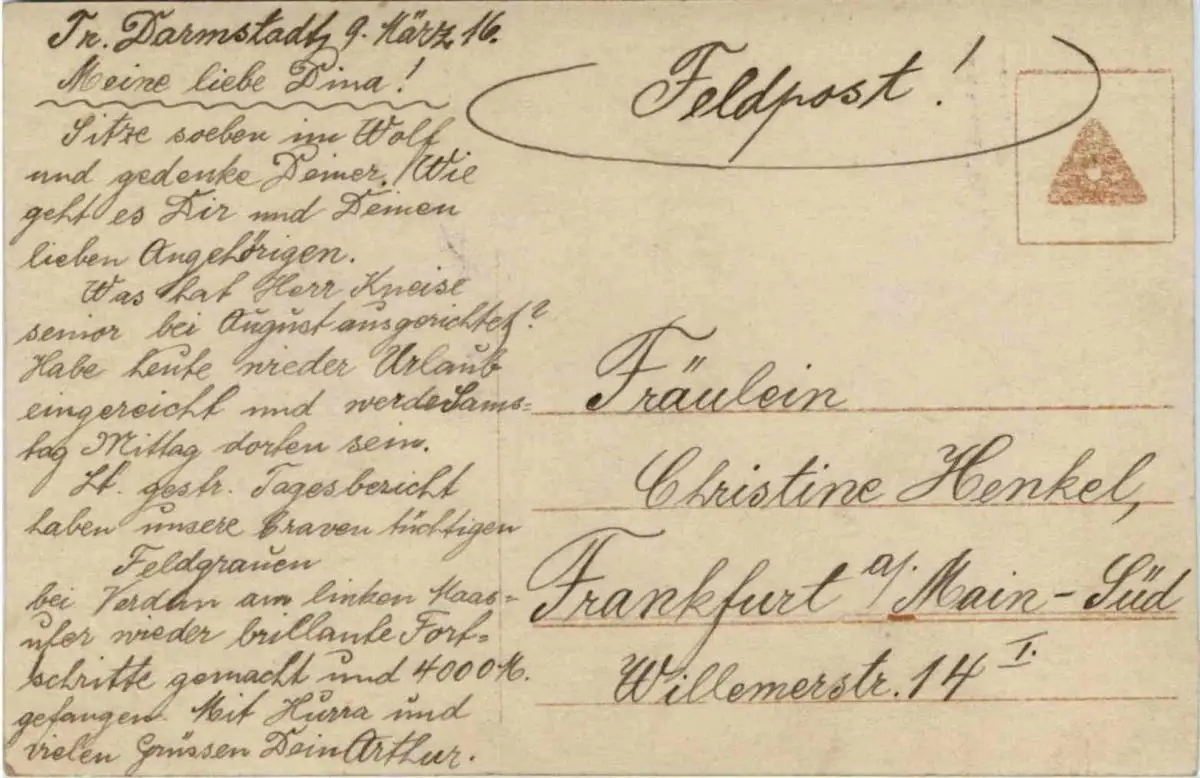 Tr. Darmstadt, 9. März 16.
Meine liebe Dina!
Sitze soeben im Wolf
und gedenke Deiner. Wie
geht es Dir und Deinen
lieben Angehörigen.
Was hat Herr Kneise
senior bei August ausgerichtet?
Habe heute wieder Urlaub
eingereicht und werde Sams=
tag Mittag dorten sein.
Lt. gestr. Tagesbericht
haben unsere braven tüchtigen
Feldgrauen
bei Verdun am linken Maas=
ufer wieder brillante Fort=
schritte gemacht und 4000 M.
gefangen. Mit Hurra und
vielen Grüssen Dein Arthur.
Feldpost!
Fräulein
Christine Henkel,
Frankfurt a/. Main-Süd
Willemerstr. 14 I.